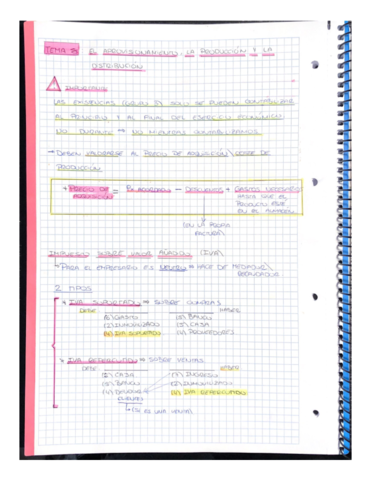 TEMA
EL APROVISIONAMIENTO, LA PRODUCCIÓN Y LA
DISTRIBUCIÓN
IMPORTANTE
LAS EXISTENCIAS SOLO SE PUEDEN CONTABILIZAR
AL PRINCIPIO Y AL FINAL DEL EJERCICIO ECONÓMICO
NO DURANTE → NO MIENTRAS CONTABILIZAMOS
→ DEBEN VALORARSE AL PRECIO DE ADQUISICIÓN / COSTE DE
PRODUCCIÓN
+ PRECIO DE ADQUISICIÓN = − DESCUENTOS + GASTOS NECESARIOS
HASTA QUE EL
PRODUCTO ESTÉ
EN EL ALMACÉN
(EN LA PROPIA
FACTURA)
IMPUESTO SOBRE VALOR AÑADIDO (IVA)
↳ PARA EL EMPRESARIO ES NEUTRO → HACE DE MEDIADOR /
RECAUDADOR
2 TIPOS
+ IVA SOPORTADO → SOBRE COMPRAS
DEBE HABER
(6) GASTO (5) BANCO
(2) INMOVILIZADO (5) CAJA
(4) IVA SOPORTADO (4) PROVEEDORES
+ IVA REPERCUTIDO → SOBRE VENTAS
DEBE HABER
(5) CAJA (7) INGRESO
(5) BANCO (2) INMOVILIZADO
(4) IVA REPERCUTIDO
↳ (SI ES UNA VENTA)